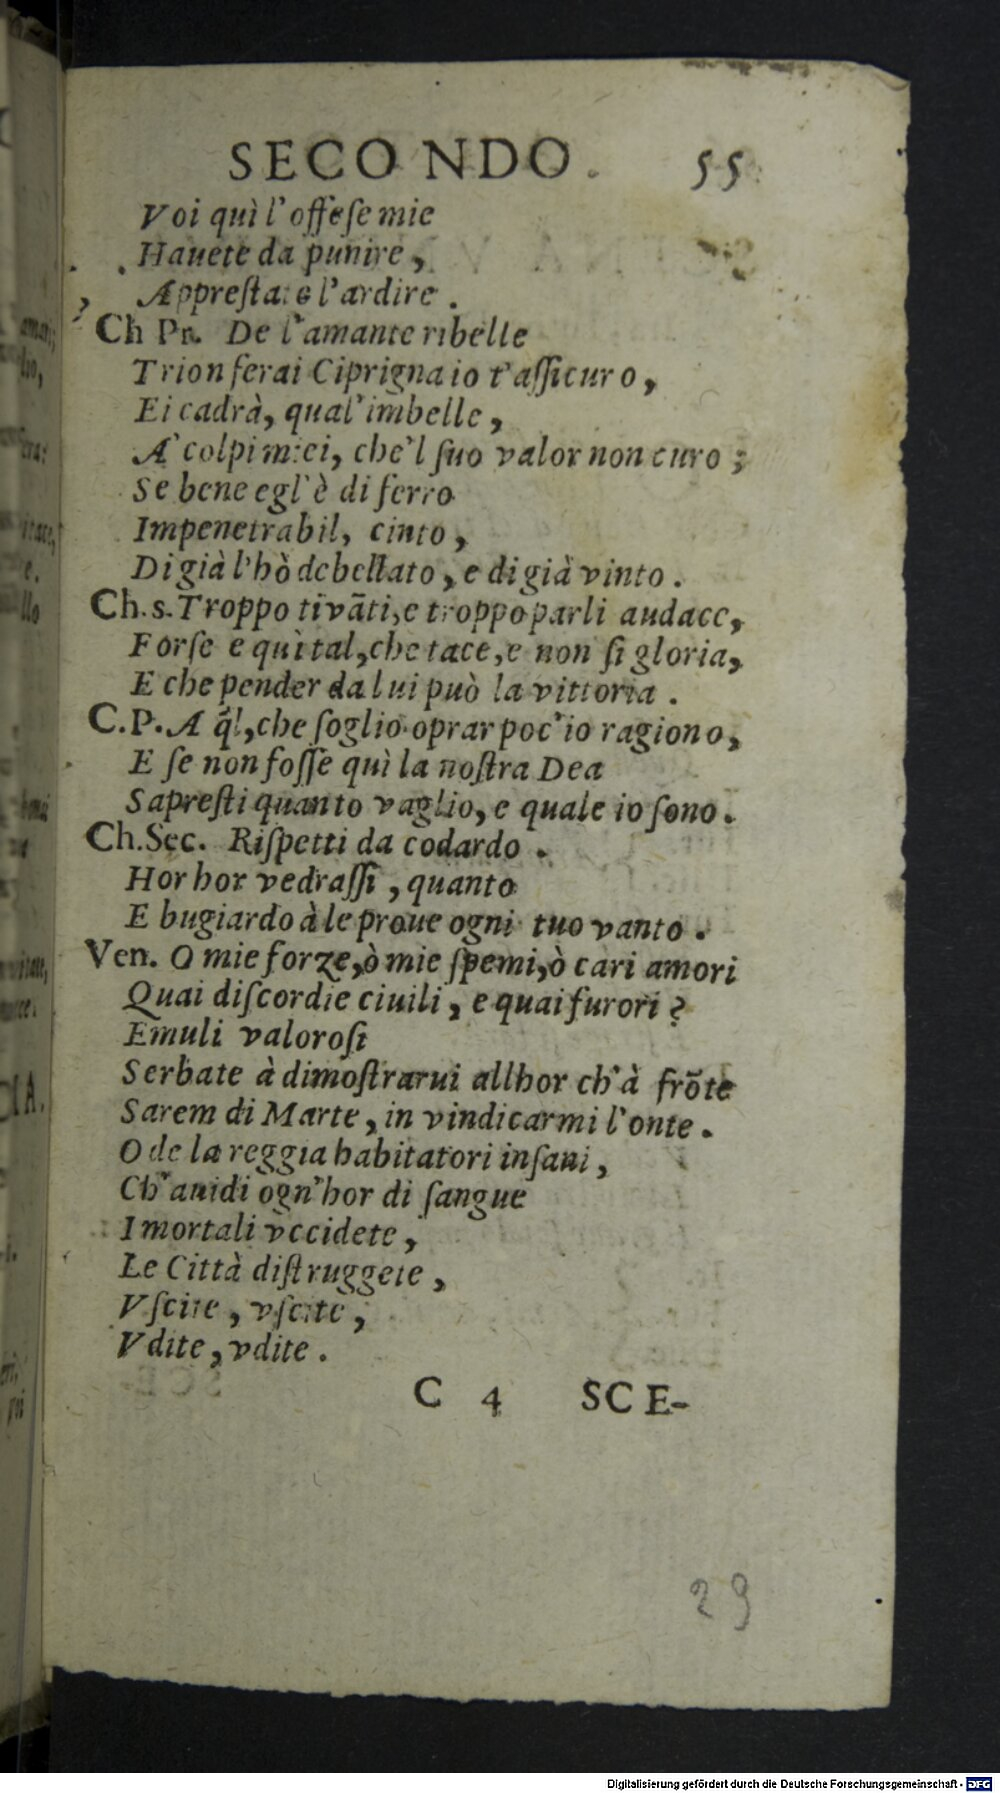 SECONDO. 55
Voi quì l'offeſe mie
Hauete da punire,
Appreſtate l'ardire.
Ch Pr. De l'amante ribelle
Trionferai Ciprigna io t'aſſicuro,
Ei cadrà, qual'imbelle,
A' colpi miei, che'l ſuo valor non curo;
Se bene egl'è di ferro
Impenetrabil, cinto,
Di già l'hò debellato, e di già vinto.
Ch.s. Troppo ti vāti, e troppo parli audace,
Forſe e quì tal, che tace, e non ſi gloria,
E che pender da lui può la vittoria.
C.P. A q̃l, che ſoglio oprar poc'io ragiono,
E ſe non foſſe quì la noſtra Dea
Sapreſti quanto vaglio, e quale io ſono.
Ch.Sec. Riſpetti da codardo.
Hor hor vedraſſi, quanto
E bugiardo à le proue ogni tuo vanto.
Ven. O mie forze, ò mie ſpemi, ò cari amori
Quai diſcordie ciuili, e quai furori?
Emuli valoroſi
Serbate à dimoſtrarui allhor ch'à frōte
Sarem di Marte, in vindicarmi l'onte.
O de la reggia habitatori inſani,
Ch'auidi ogn'hor di ſangue
I mortali vccidete,
Le Città diſtruggete,
Vſcite, vſcite,
Vdite, vdite.
C 4 SCE-
29
Digitalisierung gefördert durch die Deutsche Forschungsgemeinschaft - DFG